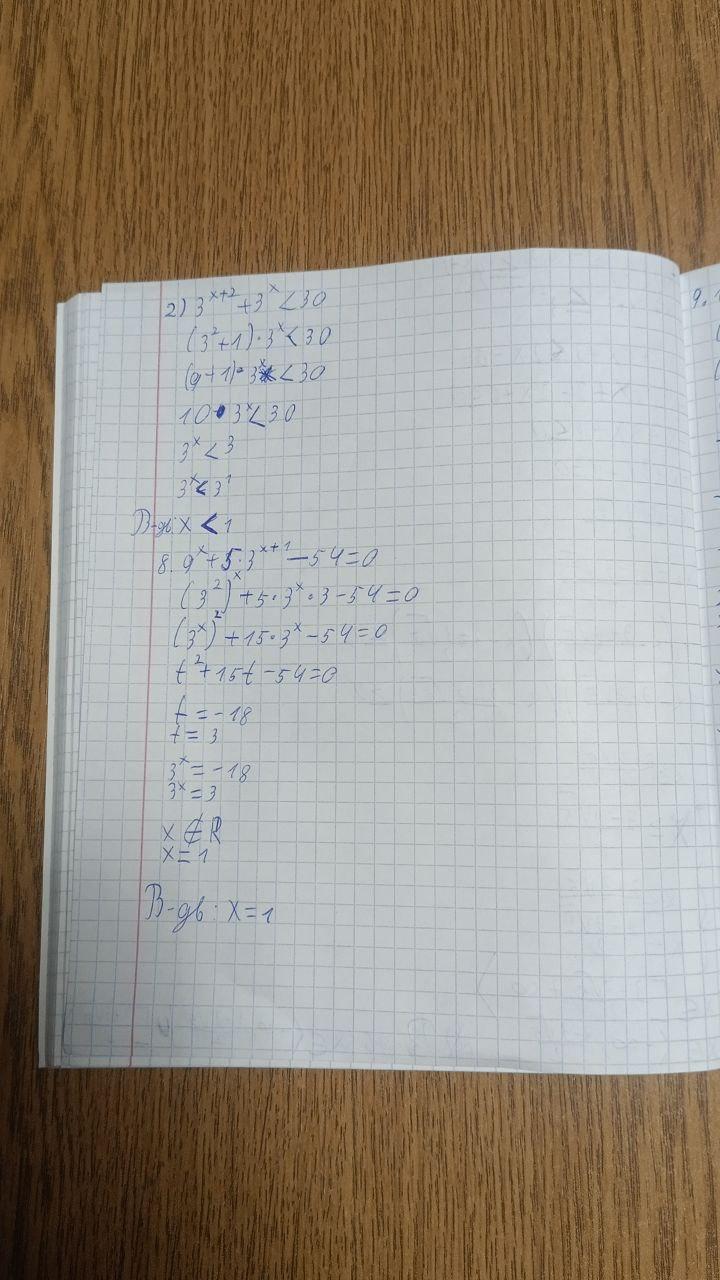 2) 3^{x+2} + 3^x < 30
(3^2+1)·3^x < 30
(9+1)·3^x < 30
10·3^x < 30
3^x < 3
3^x < 3^1
В-дь: x < 1
8. 9^x + 5·3^{x+1} - 54 = 0
(3^2)^x + 5·3^x·3 - 54 = 0
(3^x)^2 + 15·3^x - 54 = 0
t^2 + 15t - 54 = 0
t = -18
t = 3
3^x = -18
3^x = 3
x ∉ R
x = 1
В-дь: x = 1
9.